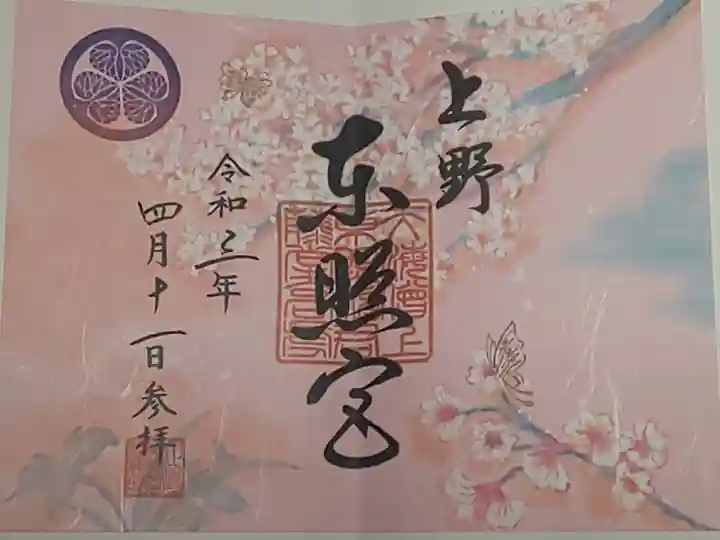 上野
东照宮
令和三年
四月十一日参拝